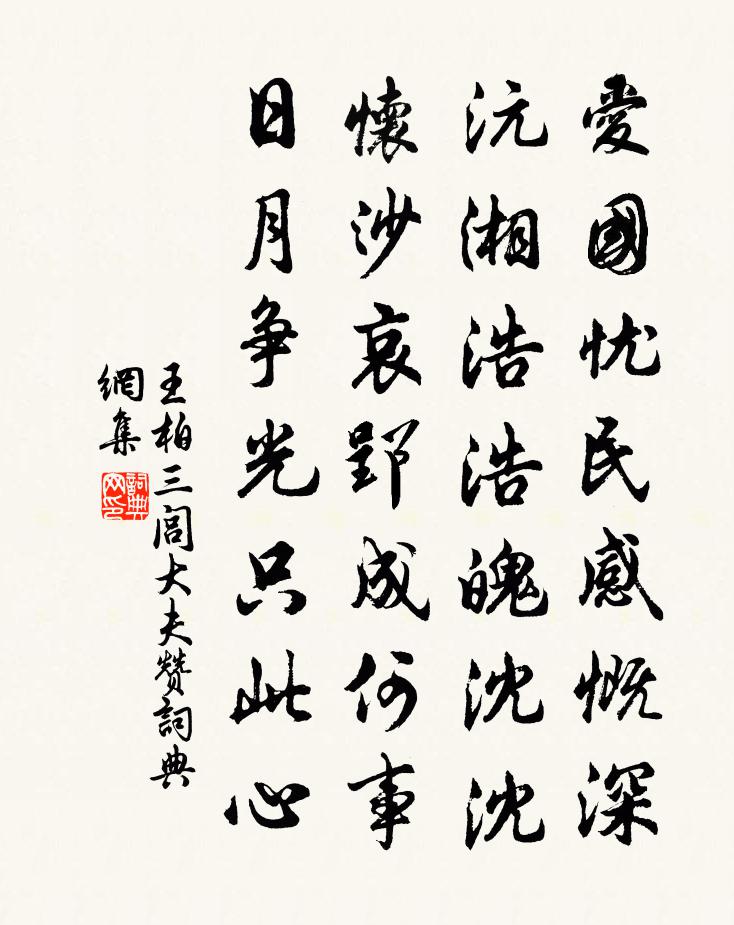 愛國忧民感慨深
沅湘浩浩魄沈沈
懷沙哀郢成何事
日月争光只此心
王柏三閭大夫赞詞典
網集
詞典
网印